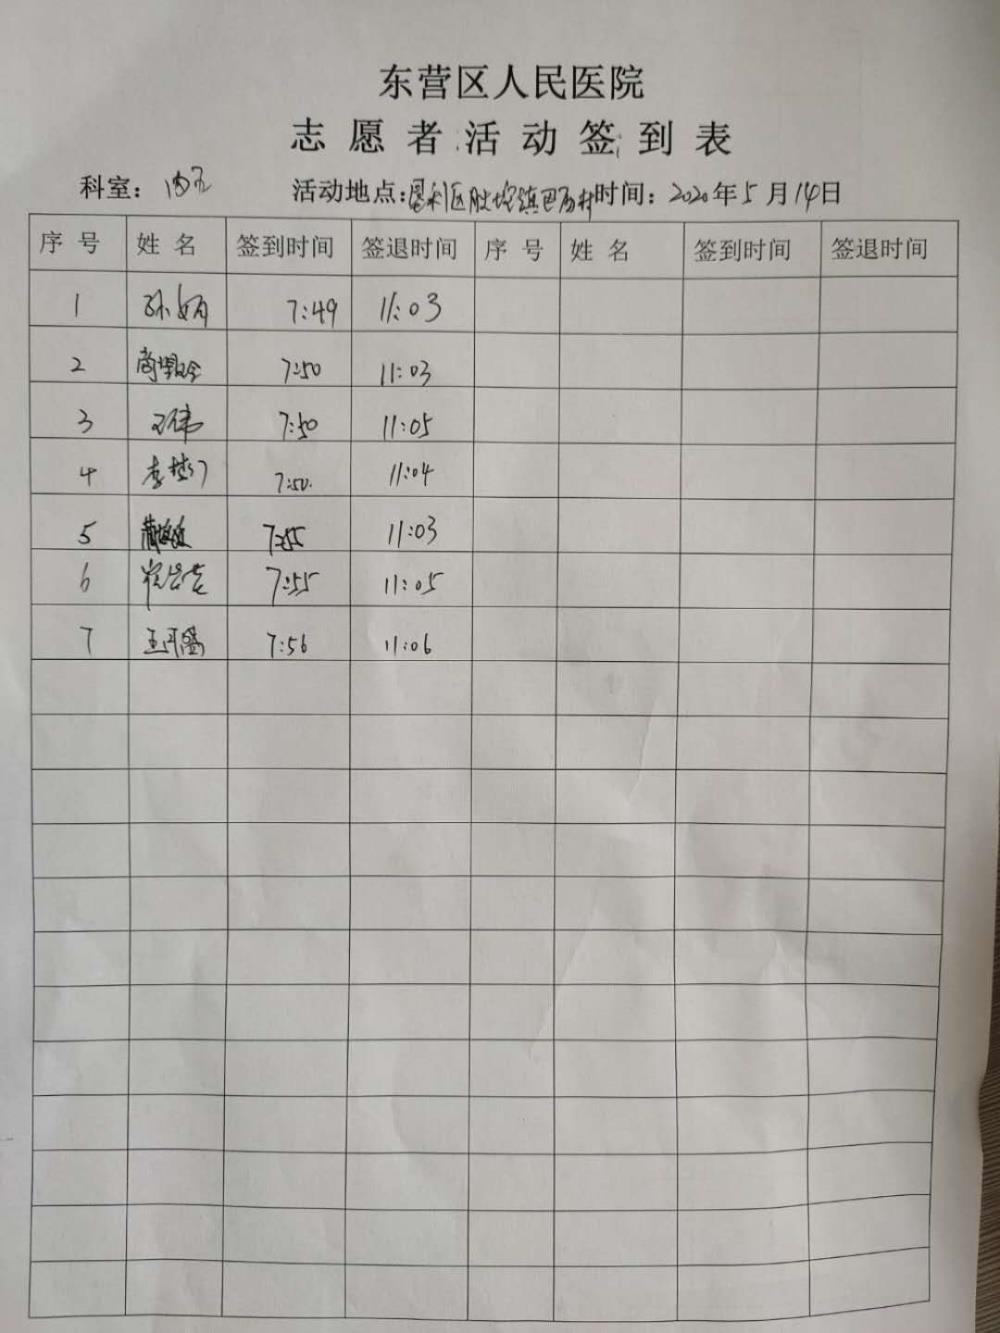 东营区人民医院
志愿者活动签到表
科室： 活动地点：垦利区胜坨镇巴 村 时间：2020年5月14日
序号 姓名 签到时间 签退时间 序号 姓名 签到时间 签退时间
1 孙娟 7:49 11:03
2 7:50 11:03
3 王伟 7:50 11:05
4 李 7:50. 11:04
5 7:55 11:03
6 7:55 11:05
7 王 7:56 11:06